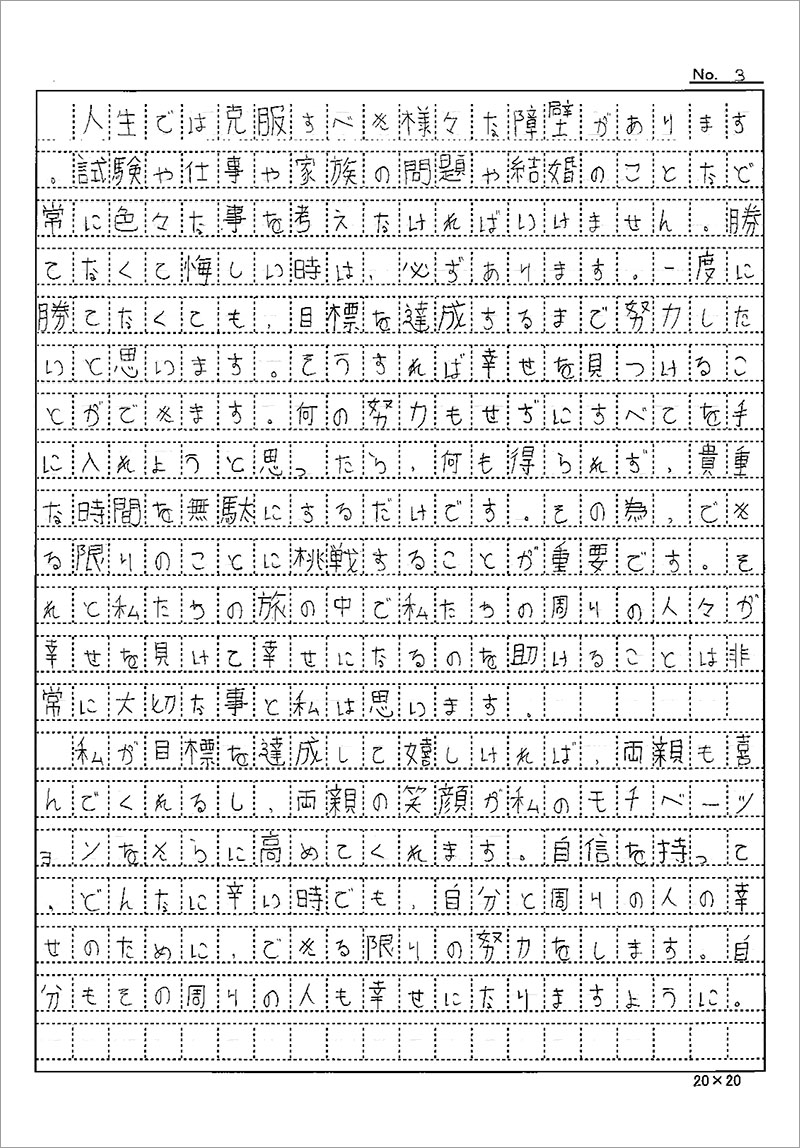 No. 3
人生では克服すべき様々な障壁があります
。試験や仕事や家族の問題や結婚のことなど
常に色々な事を考えなければいけません。勝
てなくて悔しい時は、必ずあります。一度に
勝てなくても、目標を達成するまで努力した
いと思います。そうすれば幸せを見つけるこ
とができます。何の努力もせずにすべてを手
に入れようと思ったら、何も得られず、貴重
な時間を無駄にするだけです。その為、でき
る限りのことに挑戦することが重要です。そ
れと私たちの旅の中で私たちの周りの人々が
幸せを見けて幸せになるのを助けることは非
常に大切な事と私は思います。
私が目標を達成して嬉しければ、両親も喜
んでくれるし、両親の笑顔が私のモチベーツ
ョンをきらに高めてくれます。自信を持って
、どんなに辛い時でも、自分と周りの人の幸
せのために、できる限りの努力をします。自
分もその周りの人も幸せになりますように。
20×20